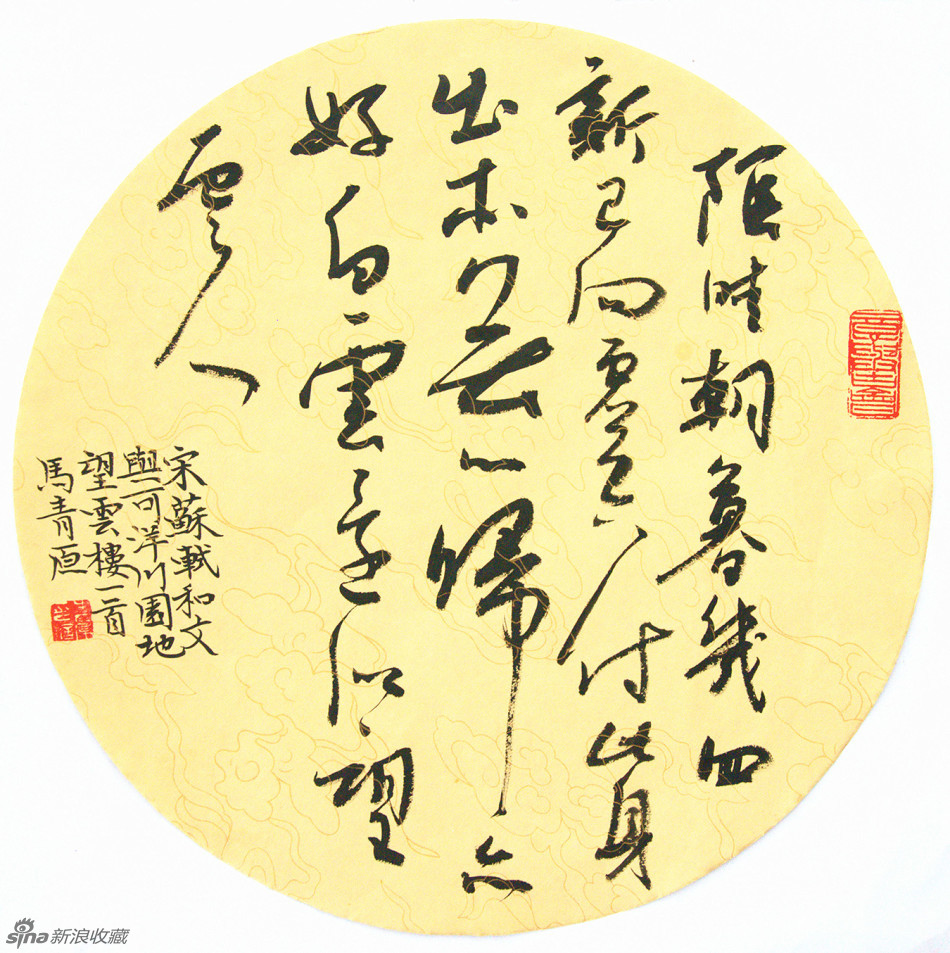 陰晴朝暮幾回
新已向虛空付此身
出本無心歸亦
好白雲還似望
雲人
宋蘇軾和文
與可洋川園地
望雲樓一首
馬青
sina新浪收藏